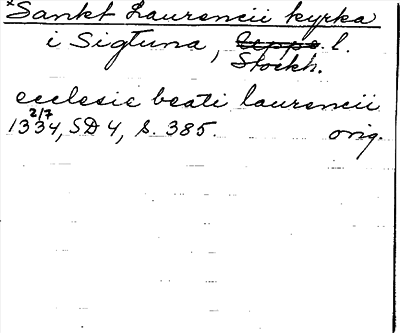 *Sankt Laurencii kyrka
i Sigtuna, l.
Stockh.
ecclesie beati laurencii
2/7
1334, SD 4, s. 385. orig.